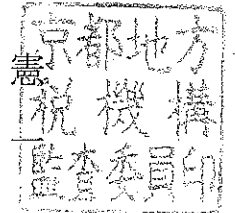 京都地方
税機構
監査委員印
憲一